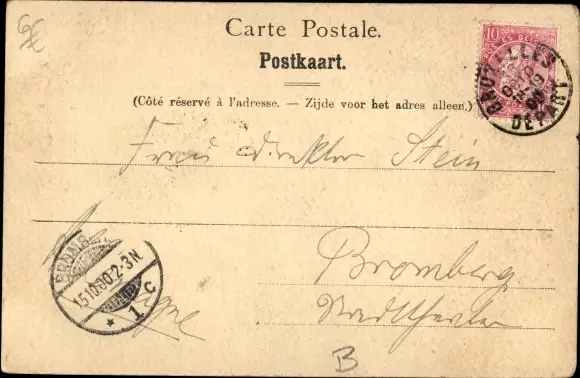 6€
Carte Postale.
Postkaart.
(Côté réservé à l'adresse. — Zijde voor het adres alleen.)
10
BRUXELLES
DÉPART
Frau Direktor Stein
Bromberg
Stadttheater
15.10.00.2-3N.
* 1 c
B